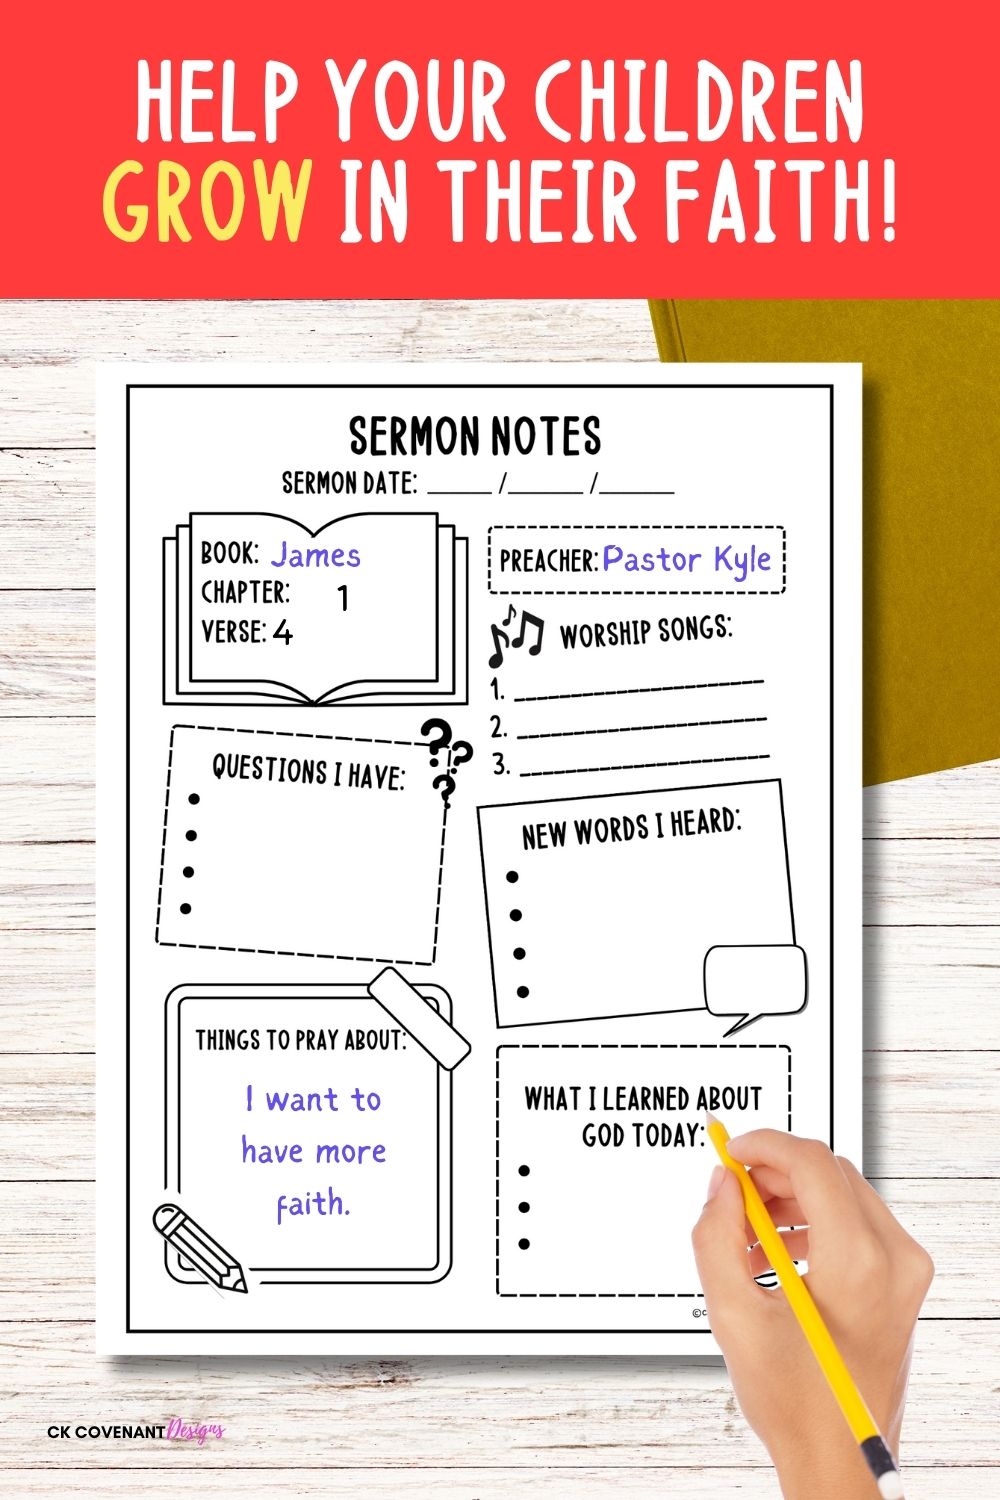 HELP YOUR CHILDREN
GROW IN THEIR FAITH!
SERMON NOTES
SERMON DATE: _____ /______ /______
BOOK: James
CHAPTER: 1
VERSE: 4
PREACHER: Pastor Kyle
WORSHIP SONGS:
1.
2.
3.
QUESTIONS I HAVE:
NEW WORDS I HEARD:
THINGS TO PRAY ABOUT:
I want to
have more
faith.
WHAT I LEARNED ABOUT
GOD TODAY:
CK COVENANT Designs